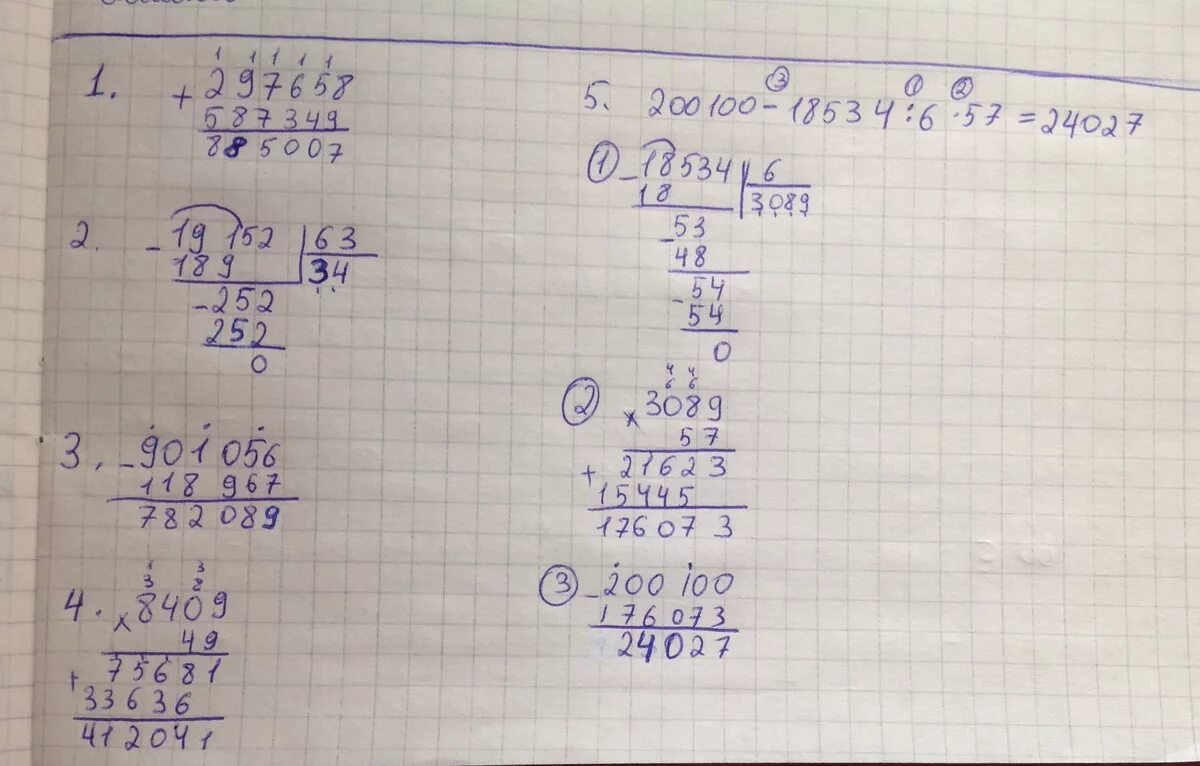 1 1 1 1 1
1. + 297658
587349
885007
2. - 19 152 | 63
189 34
- 252
252
0
3. - 901 056
118 967
782 089
4. × 8409
49
+ 75681
33636
412041
3 1 2
5. 200100 - 18534 : 6 · 57 = 24027
1 - 18534 | 6
18 3089
- 53
48
- 54
54
0
4 4
6 6
2 × 3089
57
+ 21623
15445
176073
3 - 200 100
176073
24027